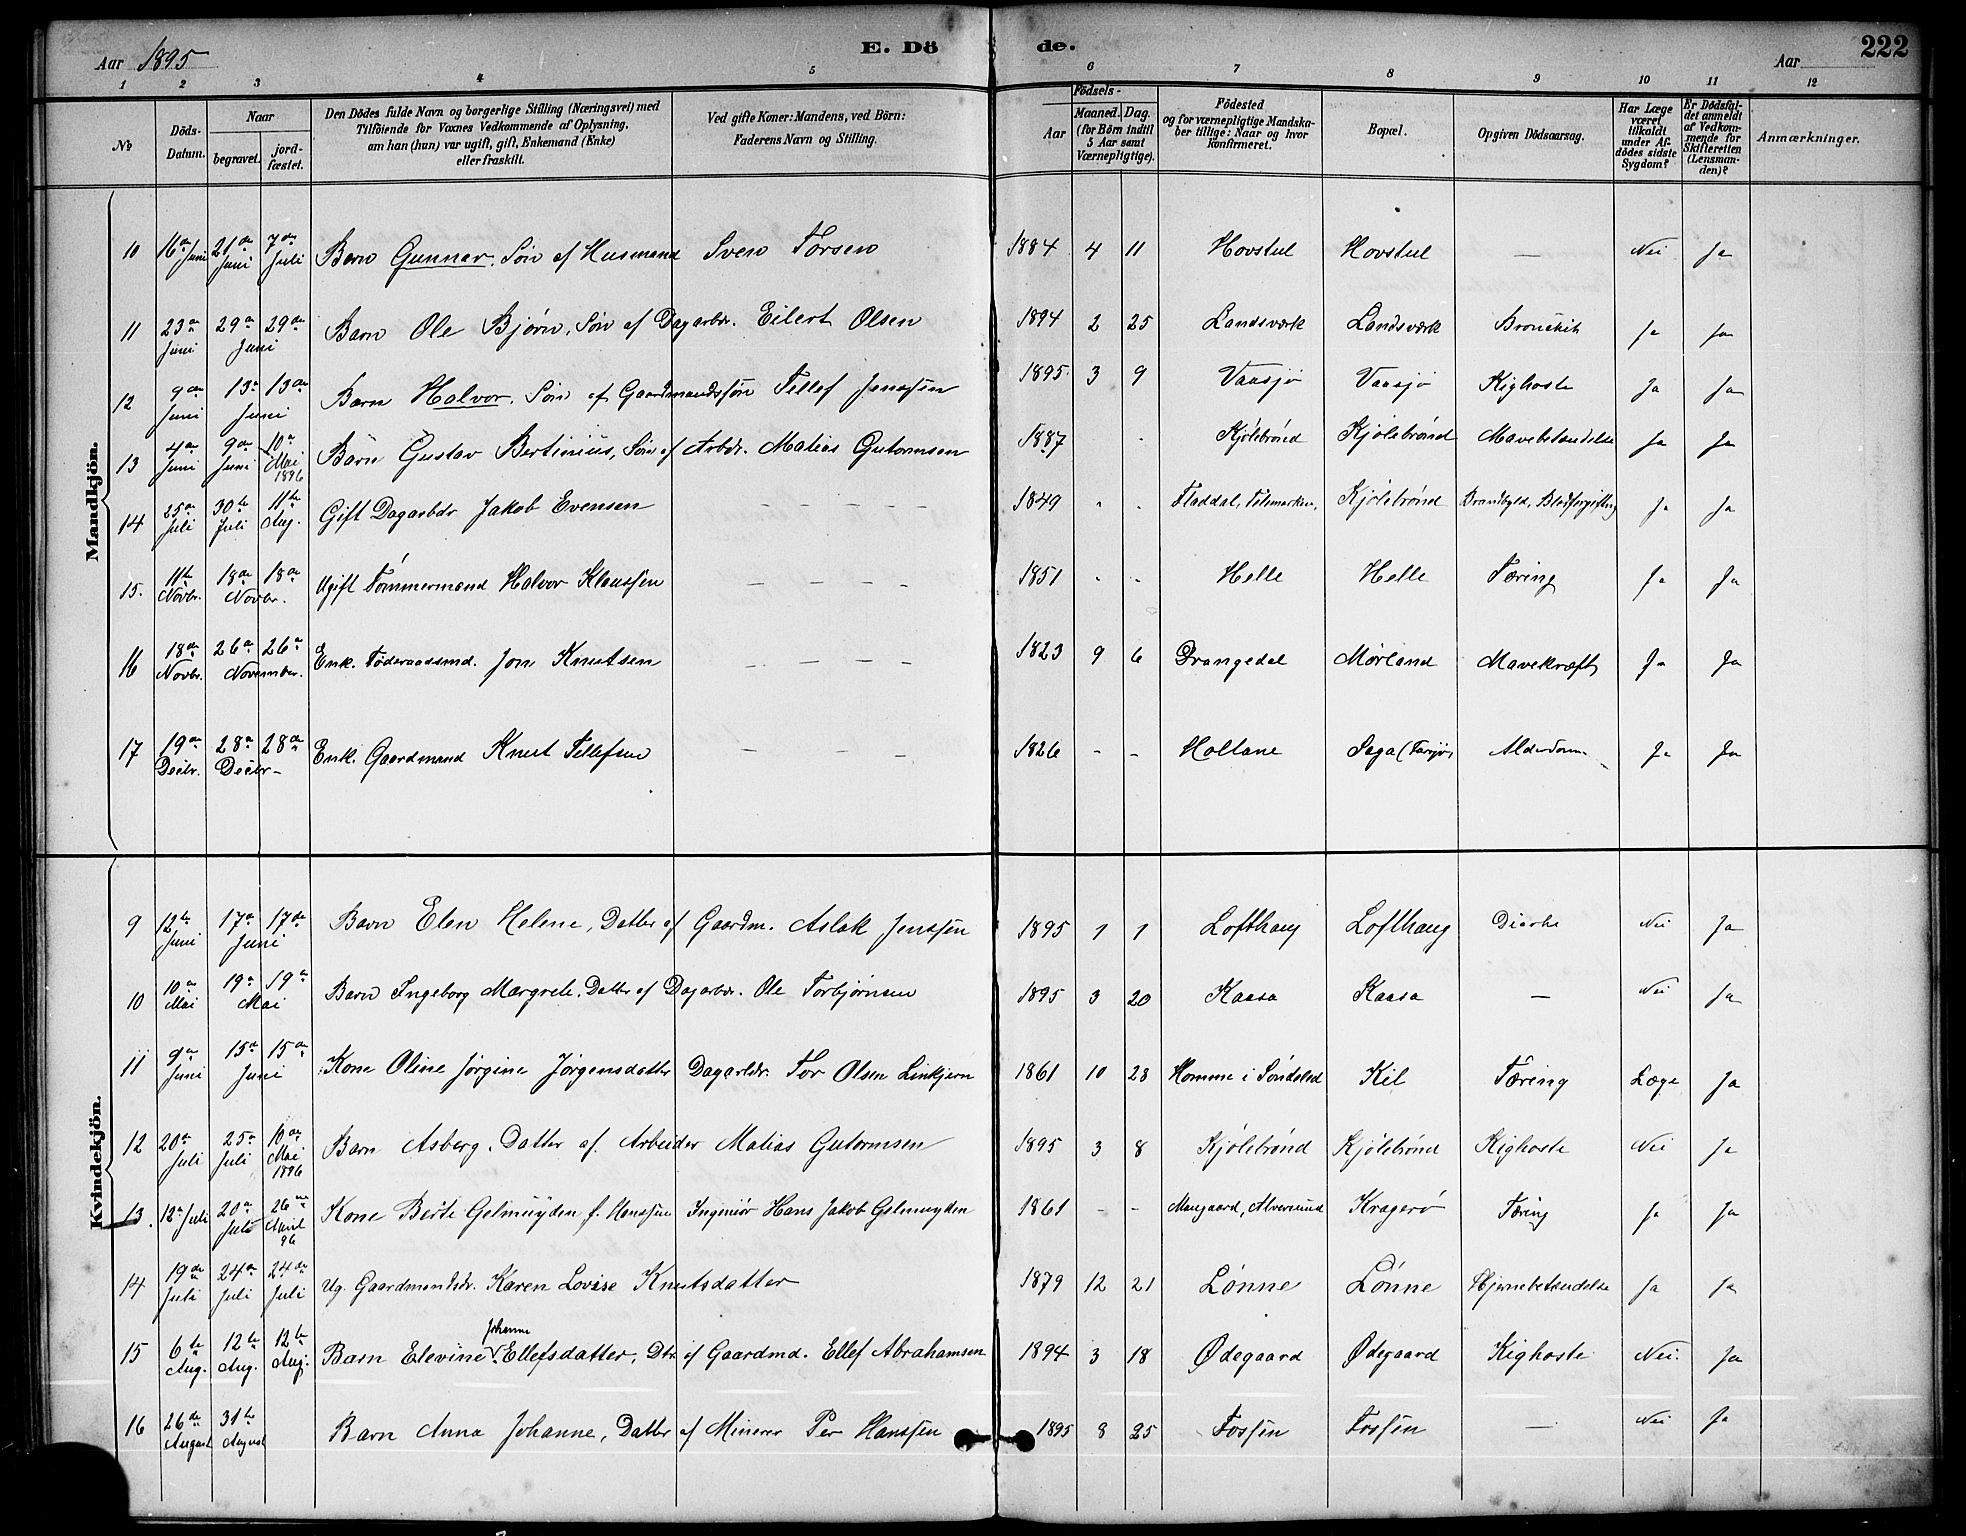 Aar 1895 E. Döde. Aar 222
1 2 3 4 5 6 7 8 9 10 11 12
№ Döds-Datum. Naar begravet. jordfæstet. Den Dödes fulde Navn og borgerlige Stilling (Næringsvei) med Tilföiende for Voxnes Vedkommende af Oplysning, om han (hun) var ugift, gift, Enkemand (Enke) eller fraskilt. Ved gifte Koner: Mandens, ved Börn: Faderens Navn og Stilling. Födsels- Aar Maaned. Dag. (for Börn indtil 5 Aar samt Værnepligtige). Födested og for værnepligtige Mandskaber tillige: Naar og hvor konfirmeret. Bopæl. Opgiven Dödsaarsag. Har Læge været tilkaldt under Afdödes sidste Sygdom? Er Dödsfaldet anmeldt af Vedkommende for Skifteretten (Lensmanden)? Anmærkninger.
Mandkjön.
10 16de Juni 21de Juni 7de Juli Barn Gunnar, Søn af Husmand Sven Torsen 1884 4 11 Hovstul Hovstul — Nei Ja
11 23de Juni 29de 29de Juni Barn Ole Bjørn, Søn af Dagarbdr. Eilert Olsen 1894 2 25 Landsværk Landsværk Bronchit Ja Ja
12 9de Juni 13de 13de Juni Barn Halvor, Søn af Gaardmandssøn Tellef Jenssen 1895 3 9 Vaasjø Vaasjø Kighoste Ja Ja
13 4de Juni 9de Juni 10de Mai 1896 Barn Gustav Bertinius, Søn af Arbdr. Matias Gutormsen 1887 Kjølebrønd Kjølebrønd Mavebetændelse Ja Ja
14 25de Juli 30te Juli 11te Aug. Gift Dagarbdr Jakob Evensen — — — — 1849 Kjølebrønd Brandbyld, Blodforgiftng Ja Ja
15. 11te Novbr. 18de 18de Novbr. Ugift Tømmermand Halvor Klaussen — — — — 1851 Helle Helle Tæring Ja Ja
16 18de Novbr. 26de 26de November. Enk. Føderaadsmd. Jon Knutsen — — — — 1823 9 6 Drangedal Mørland Mavekræft Ja Ja
17 19de Decbr. 28de 28de Decbr Enk. Gaardmand Knut Tellefsen — — — 1826 - - Holtane Alderdom Ja Ja
Kvindekjön.
9 12te Juni 17de 17de Juni Barn Elen Helene, Datter af Gaardm. Aslak Jenssen 1895 1 1 Lofthaug Lofthaug Diarhe Nei Ja
10 10de Mai 19de 19de Mai Barn Ingeborg Margrete, Datter af Dagarbdr. Ole Torbjørnsen 1895 3 20 Kaasa Kaasa — Nei Ja
11 9de Juni 15de 15de Juni Kone Oline Jørgine Jørgensdatter Dagarbdr. Tor Olsen Linkjern 1861 10 28 Homme i Søndeled Kil Tæring Læge Ja
12 20de Juli 25de Juli 10de Mai 1896 Barn Asberg, Datter af Arbeider Matias Gutormsen 1895 3 8 Kjølebrønd Kjølebrønd Kighoste Nei Ja
13. 12te Juli 20de Juli 26de April 96 Kone Berte Gelmuyden f. Hanssen Ingeniør Hans Jakob Gelmuyden 1861 - - Alversund Kragerø Tæring Ja Ja
14 19de Juli 24de Juli 24de Juli Ug. Gaardmandsdr. Karen Lovise Knutsdatter 1879 12 21 Lønne Lønne Hjernebetændelse Ja Ja
15 6te Aug. 12te Aug. 12te Aug. Barn Elevine Johanne Ellefsdatter, Dtr. af Gaardmd. Ellef Abrahamsen 1894 3 18 Ødegaard Ødegaard Kighoste Nei. Ja
16 26de August 31te August Barn Anna Johanne, Datter af Minerer Per Hanssen 1895 8 25 Fossen Fossen — Nei Ja